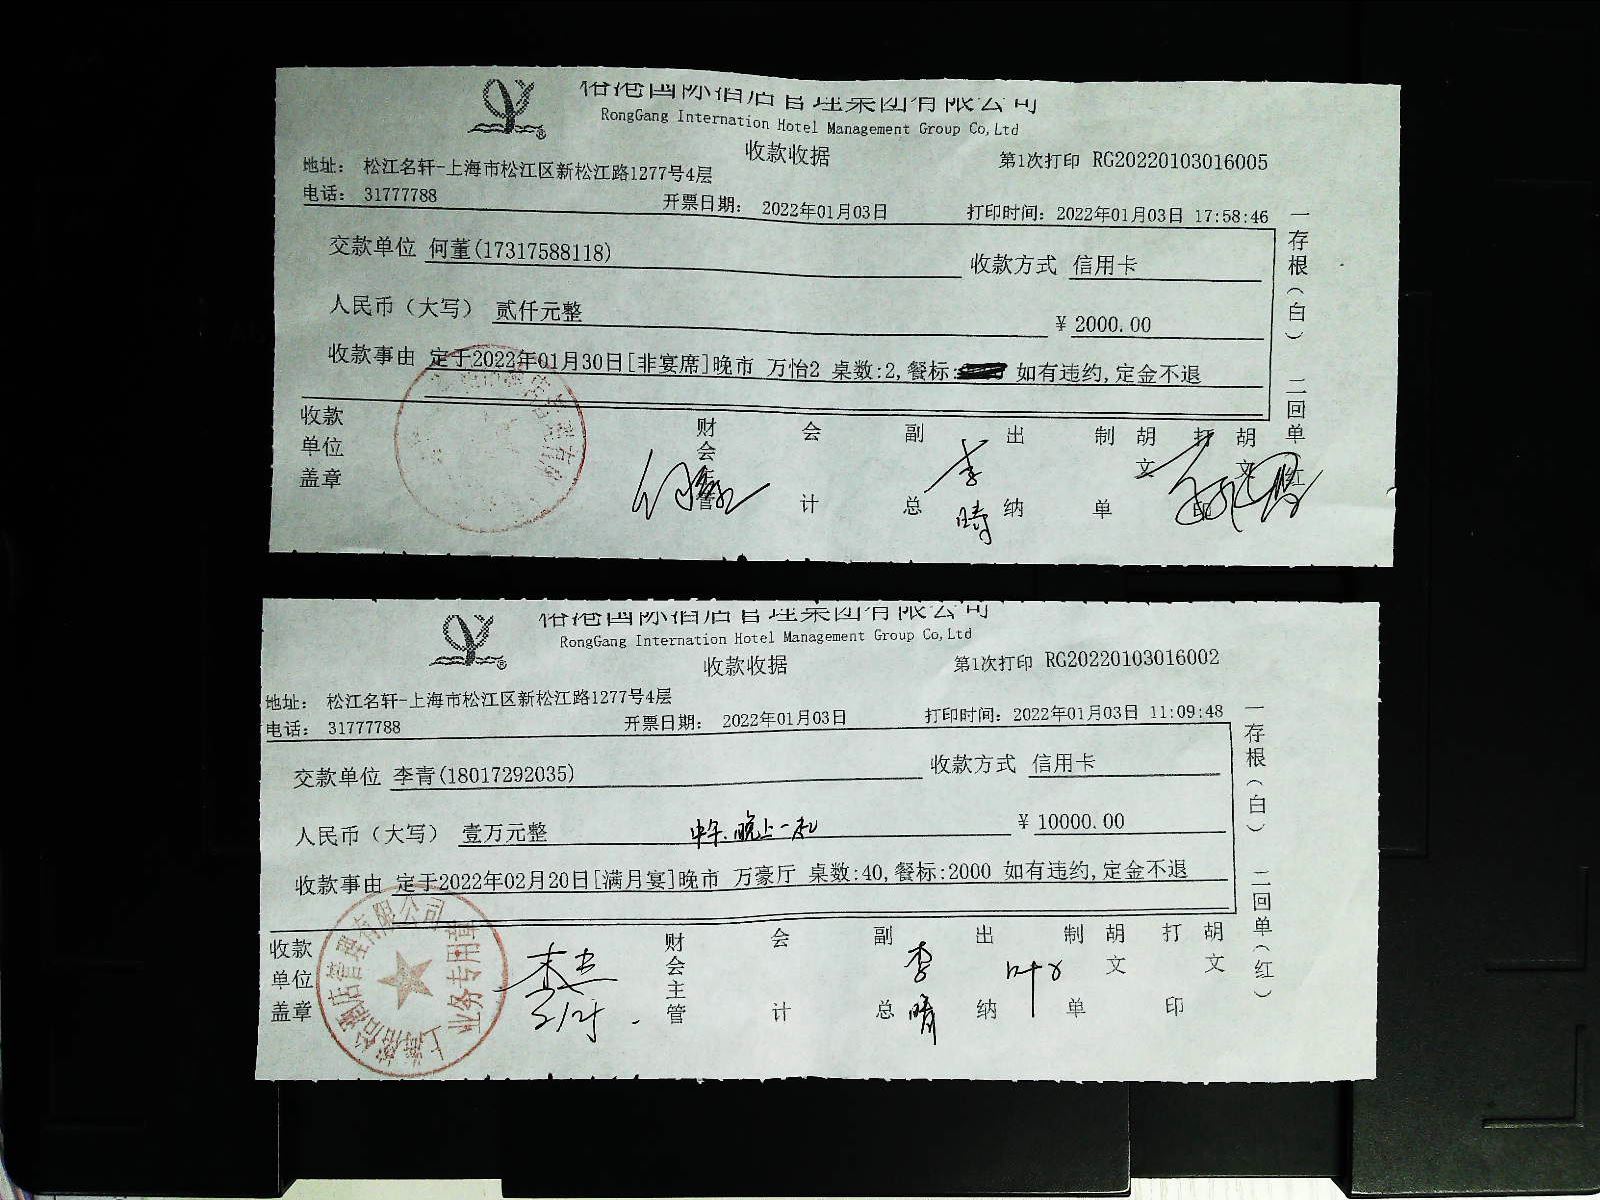 榕港国际酒店管理集团有限公司
RongGang Internation Hotel Management Group Co,Ltd
收款收据
第1次打印 RG20220103016005
地址： 松江名轩-上海市松江区新松江路1277号4层
电话： 31777788
开票日期： 2022年01月03日
打印时间：2022年01月03日 17:58:46
交款单位 何董(17317588118)
收款方式 信用卡
人民币（大写） 贰仟元整
¥ 2000.00
收款事由 定于2022年01月30日[非宴席]晚市 万怡2 桌数:2,餐标: 如有违约,定金不退
一存根（白） 二回单（红
收款单位盖章
财会主管 会计 副总 李晴 出纳 制单 胡文 打印 胡文
榕港国际酒店管理集团有限公司
RongGang Internation Hotel Management Group Co,Ltd
收款收据
第1次打印 RG20220103016002
地址： 松江名轩-上海市松江区新松江路1277号4层
电话： 31777788
开票日期： 2022年01月03日
打印时间：2022年01月03日 11:09:48
交款单位 李青(18017292035)
收款方式 信用卡
人民币（大写） 壹万元整
中午.晚上一起
¥ 10000.00
收款事由 定于2022年02月20日[满月宴]晚市 万豪厅 桌数:40,餐标:2000 如有违约,定金不退
一存根（白） 二回单（红）
收款单位盖章
业务专用章
财会主管 会计 副总 李晴 出纳 制单 胡文 打印 胡文